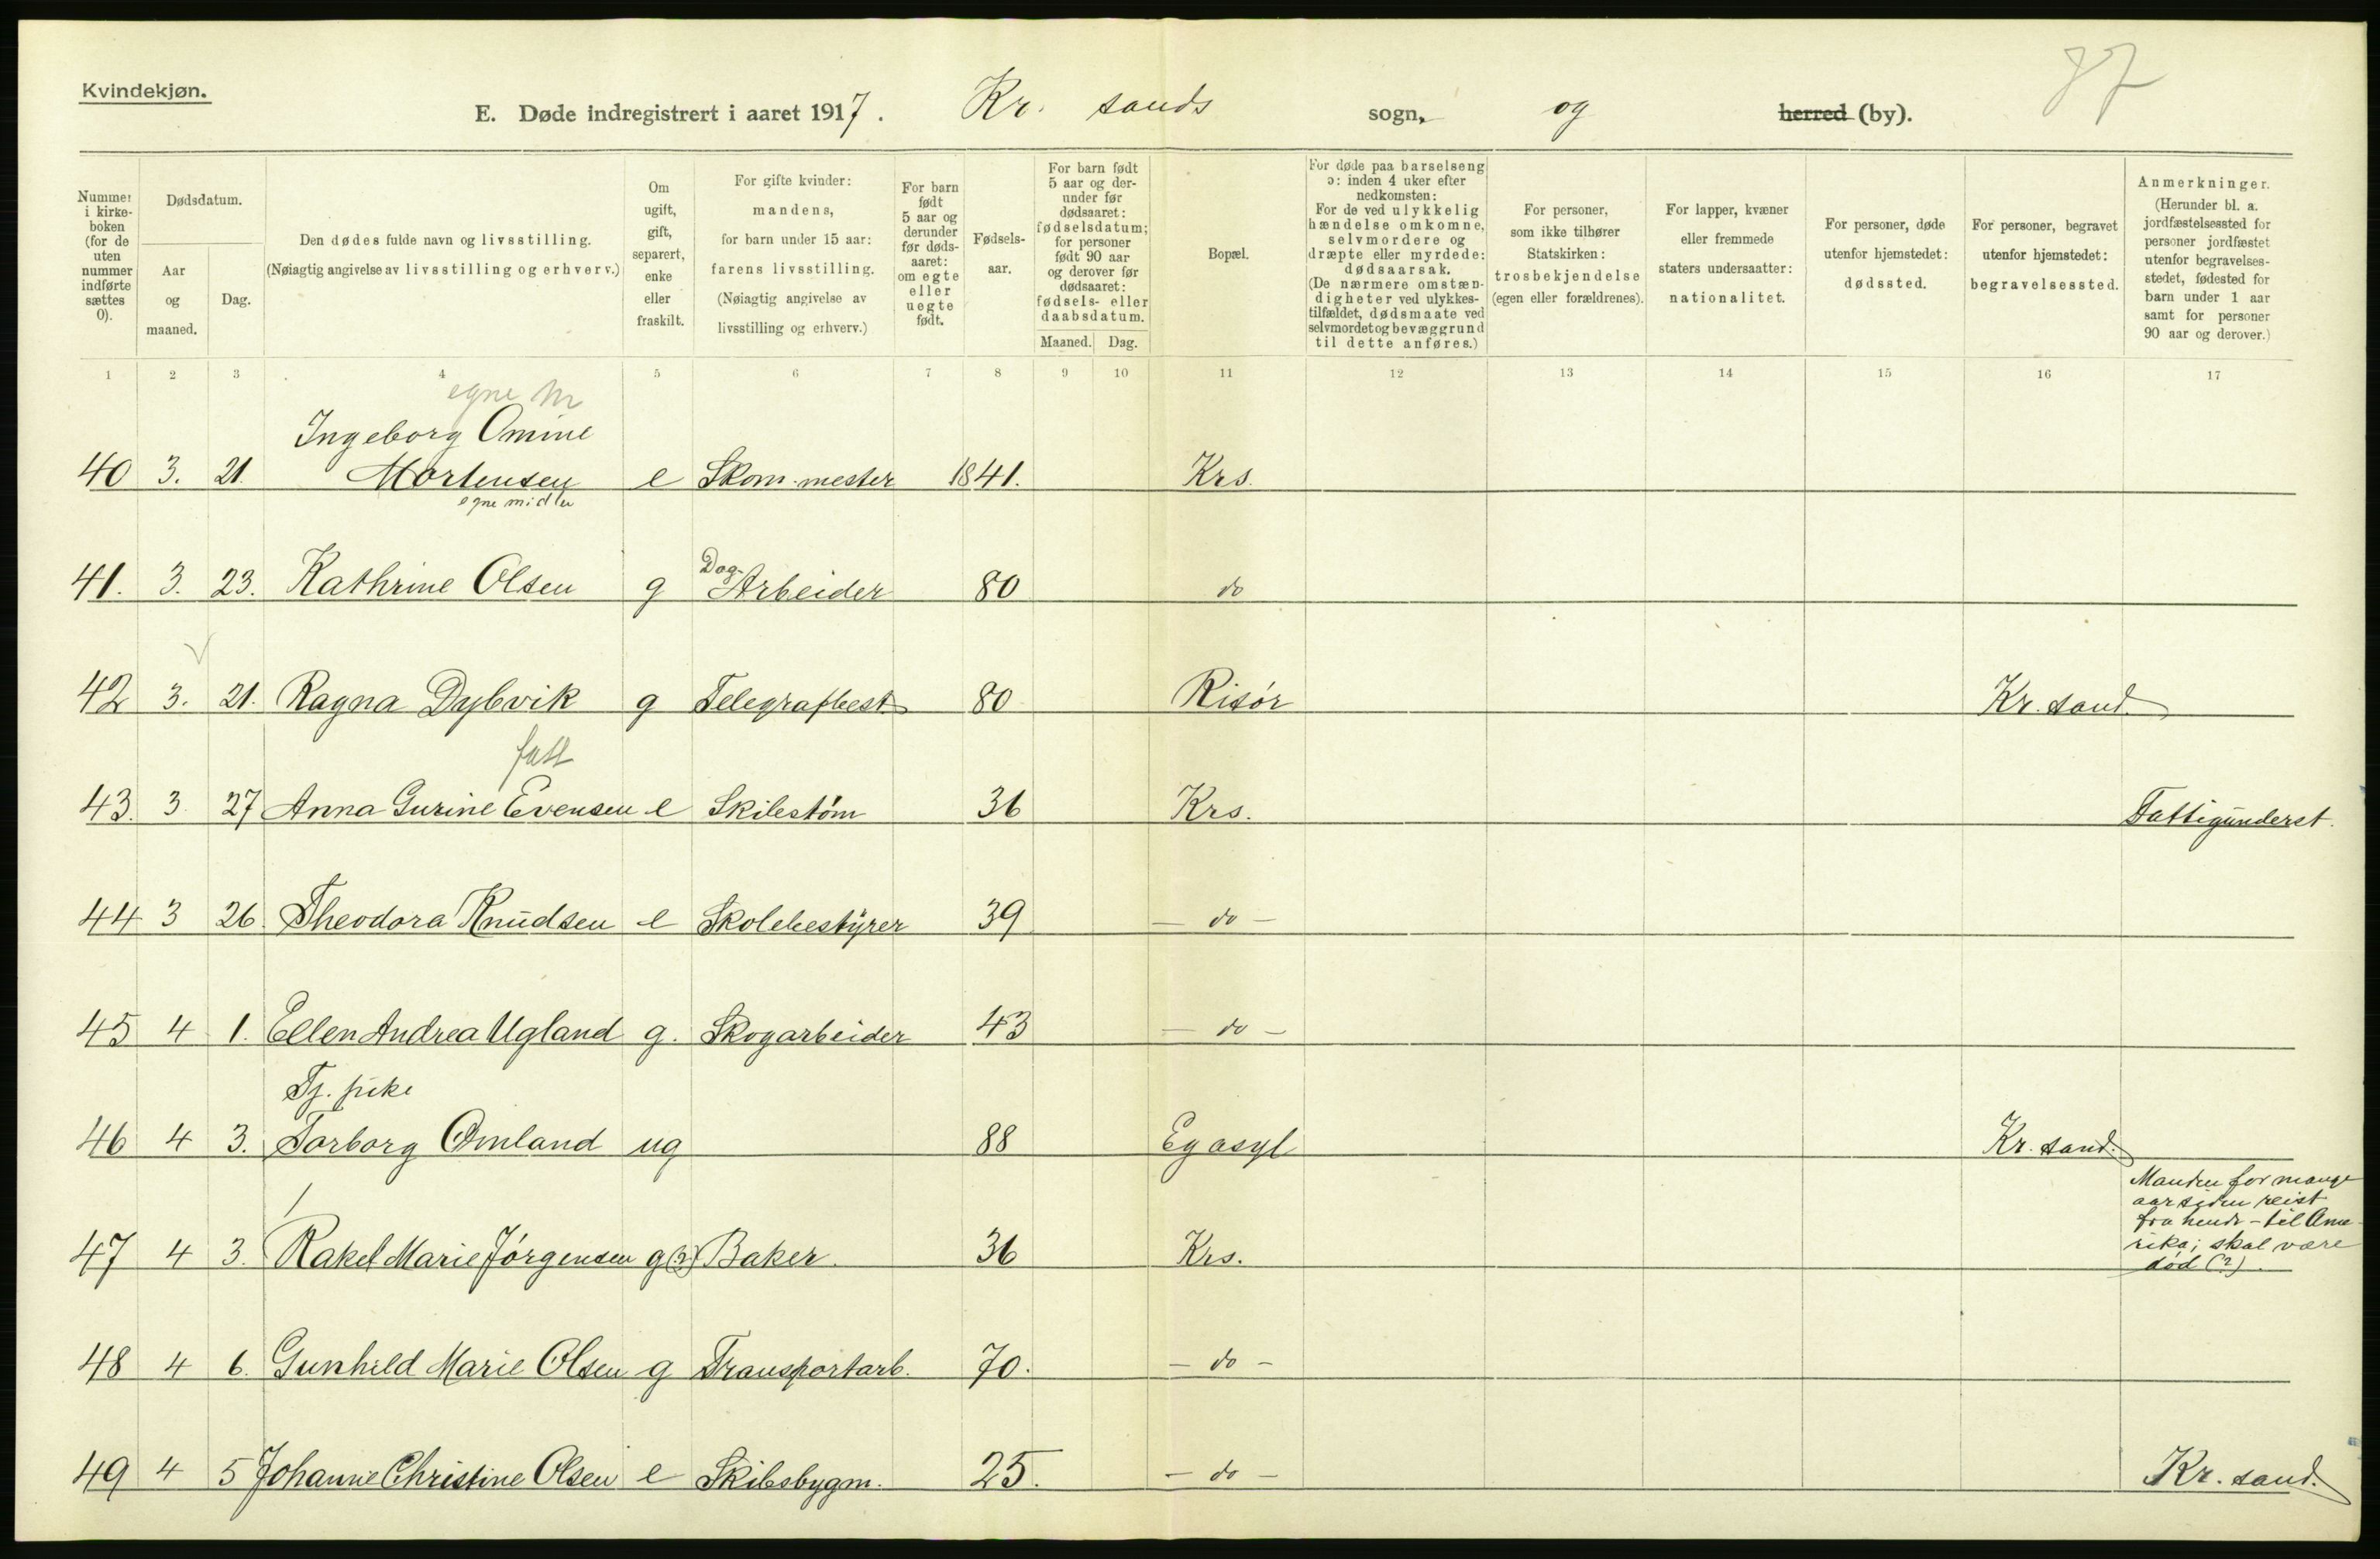 Kvindekjøn.
E. Døde indregistrert i aaret 1917. Kr. sands sogn, og herred (by). 87
Nummer i kirkeboken (for de uten nummer indførte sættes 0).
Dødsdatum.
Aar og maaned.
Dag.
Den dødes fulde navn og livsstilling.
(Nøiagtig angivelse av livsstilling og erhverv.)
Om ugift, gift, separert, enke eller fraskilt.
For gifte kvinder: mandens, for barn under 15 aar: farens livsstilling. (Nøiagtig angivelse av livsstilling og erhverv.)
For barn født 5 aar og derunder før dødsaaret: om egte eller uegte født.
Fødselsaar.
For barn født 5 aar og derunder før dødsaaret: fødselsdatum; for personer født 90 aar og derover før dødsaaret: fødsels- eller daabsdatum.
Maaned. Dag.
Bopæl.
For døde paa barselseng ɔ: inden 4 uker efter nedkomsten: For de ved ulykkelig hændelse omkomne, selvmordere og dræpte eller myrdede: dødsaarsak. (De nærmere omstændigheter ved ulykkestilfældet, dødsmaate ved selvmordet og bevæggrund til dette anføres.)
For personer, som ikke tilhører Statskirken: trosbekjendelse (egen eller forældrenes).
For lapper, kvæner eller fremmede staters undersaatter: nationalitet.
For personer, døde utenfor hjemstedet: dødssted.
For personer, begravet utenfor hjemstedet: begravelsessted.
Anmerkninger. (Herunder bl. a. jordfæstelsessted for personer jordfæstet utenfor begravelsesstedet, fødested for barn under 1 aar samt for personer 90 aar og derover.)
1 2 3 4 5 6 7 8 9 10 11 12 13 14 15 16 17
egne m
Ingeborg Omine
40 3. 21. Mortensen e Skom.mester 1841. Krs.
egne midler
41. 3. 23. Kathrine Olsen g Dag-Arbeider 80 do
42 3. 21. Ragna Dybvik g Telegrafbest. 80 Risør Kr. sand.
fatt
43. 3. 27 Anna Gurine Evensen e Skibstøm 36 Krs. Fattigunderst.
44 3 26. Theodora Knudsen e Skolebestyrer 39 - do -
45 4 1. Ellen Andrea Ugland g. Skogarbeider 43 - do -
Tj. pike
46 4 3. Torborg Omland ug 88 Eg asyl Kr. sand.
47 4 3. Rakel Marie Jørgensen g(?) Baker. 36 Krs.
Manden for mange
aar siden reist
fra hende - til Ame-
rika; skal være
død (?).
48 4 6. Gunhild Marie Olsen g Transportarb. 70. - do -
49 4 5 Johanne Christine Olsen e Skibsbygm. 25. - do - Kr. sand.